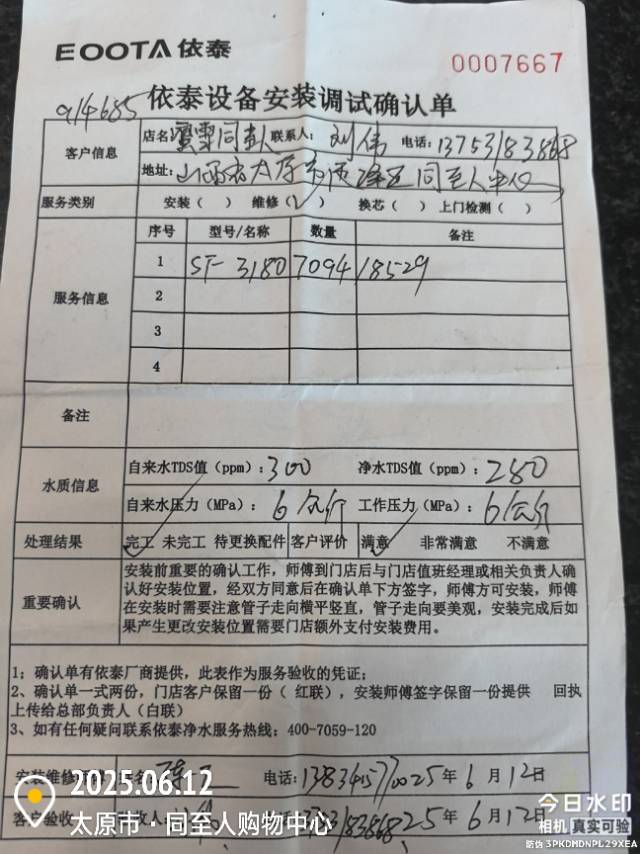 EOOTA 依泰
0007667
914685 依泰设备安装调试确认单
客户信息
店名: 同至人 联系人: 刘伟 电话: 13753183868
地址: 山西省太原市 同至人中心
服务类别 安装( ) 维修(✓) 换芯( ) 上门检测( )
服务信息
序号 型号/名称 数量 备注
1 ST-3180 7094 18529
2
3
4
备注
水质信息
自来水TDS值(ppm): 300 净水TDS值(ppm): 280
自来水压力(MPa): 6公斤 工作压力(MPa): 6公斤
处理结果 完工 未完工 待更换配件 客户评价 满意 非常满意 不满意
重要确认
安装前重要的确认工作，师傅到门店后与门店值班经理或相关负责人确
认好安装位置，经双方同意后在确认单下方签字，师傅方可安装，师傅
在安装时需要注意管子走向横平竖直，管子走向要美观，安装完成后如
果产生更改安装位置需要门店额外支付安装费用。
1；确认单有依泰厂商提供，此表作为服务验收的凭证；
2、确认单一式两份，门店客户保留一份（ 红联），安装师傅签字保留一份提供 回执
上传给总部负责人（白联）
3、如有任何疑问联系依泰净水服务热线：400-7059-120
安装维修 名 电话: 25年6月12日
客户验收 收人 25年6月12日
2025.06.12
太原市·同至人购物中心
今日水印
相机 真实可验
防伪 3PKDMDNPL29XEA